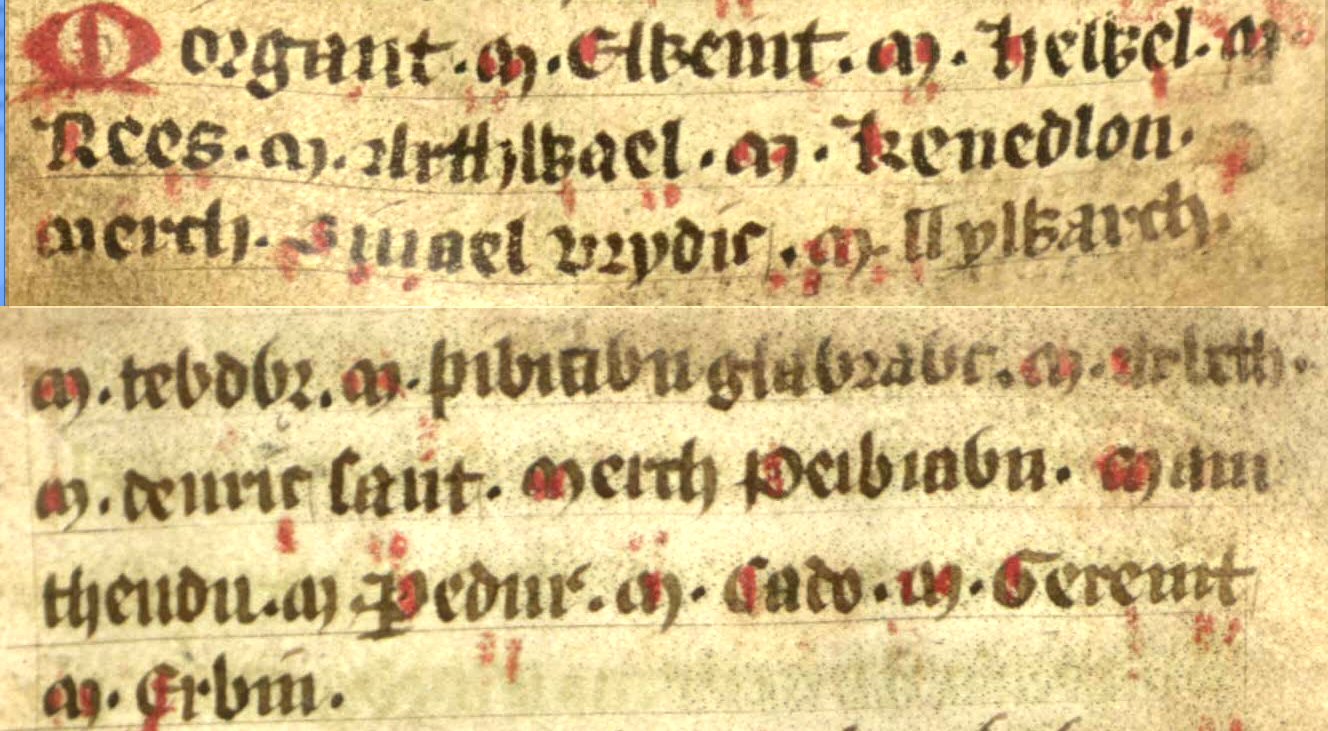 Morgant. m. Elỽeint. m. Heỽel. m.
Rees. m. Arthỽael. m. Kenedlon.
merch. vrydic. m. llyỽarch.
m. teỽdỽr. m. pibiaỽn glaỽraỽc. m.
m. deuric sant. merch Peibiaỽn. mam
theudu. m Pedur. m. Cado. m. Gereint
m. Erbin.